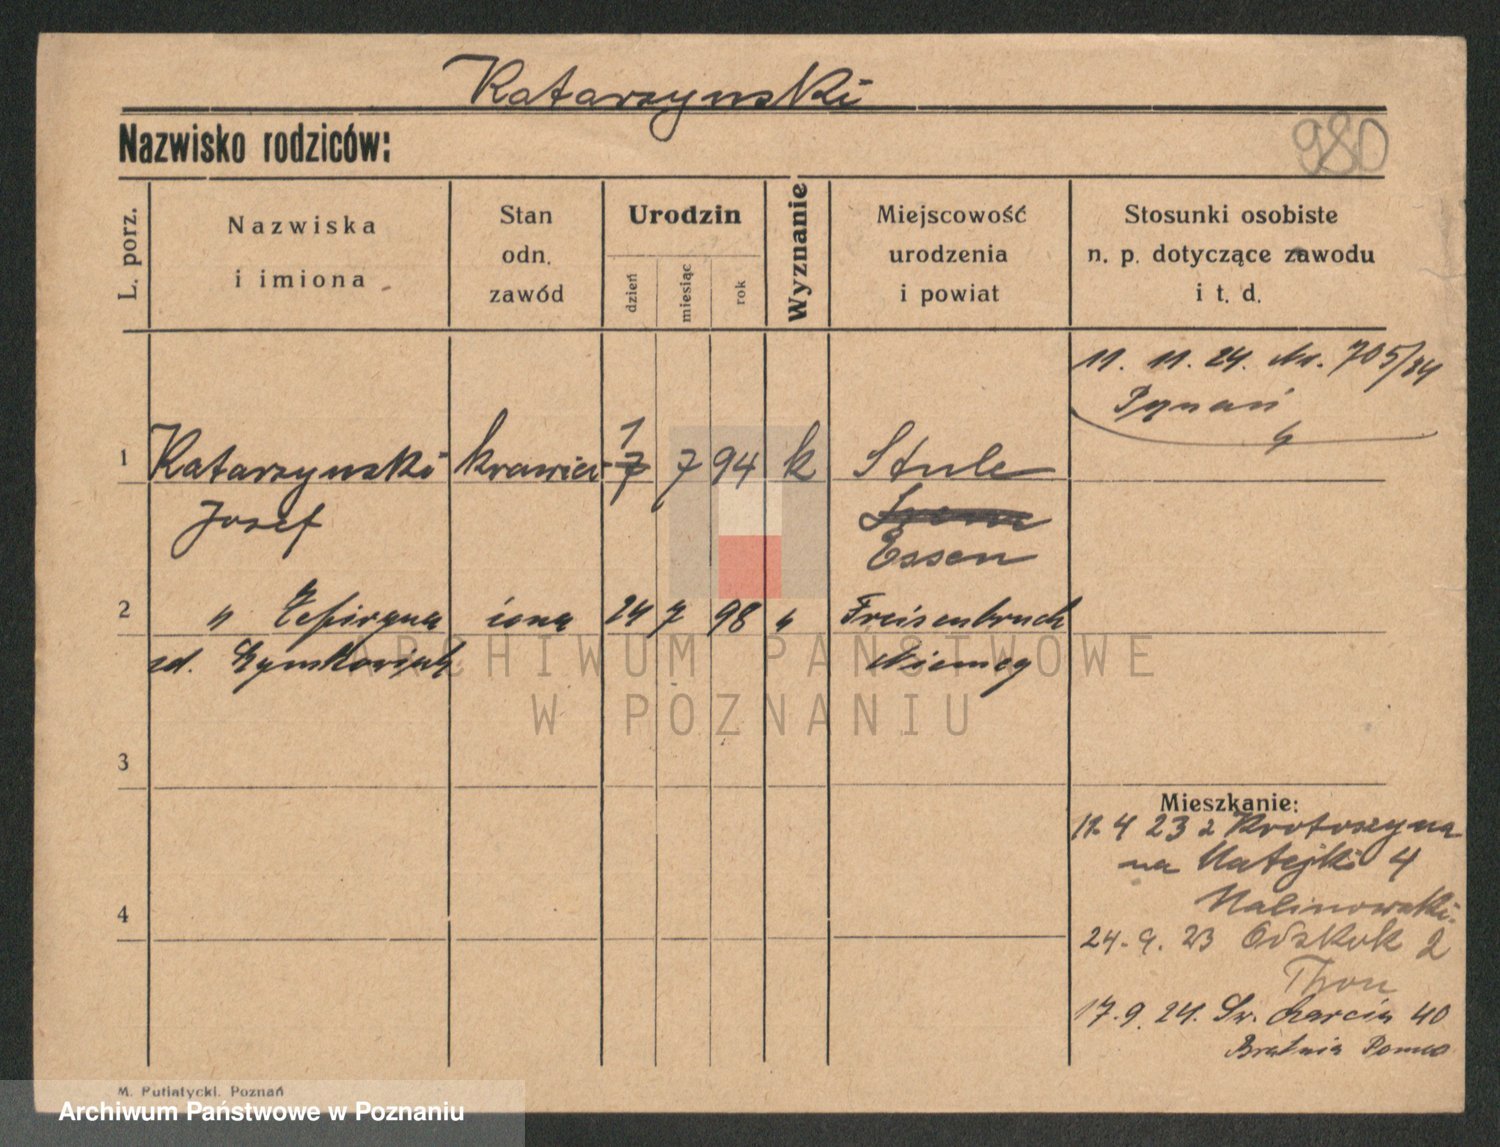 Katarzynski
Nazwisko rodziców:
980
L. porz.
Nazwiska
i imiona
Stan
odn.
zawód
Urodzin
dzień
miesiąc
rok
Wyznanie
Miejscowość
urodzenia
i powiat
Stosunki osobiste
n. p. dotyczące zawodu
i t. d.
11. 11. 24. Nr. 705/24
1
1 Katarzynski krawiec 7 7 94 k Stule
Josef
Essen
2 " żona 24 7 98 " Freisenbruch
Niemcy
3
4
Mieszkanie:
11. 4 23 z Krotoszyna
na Matejki 4
Malinowski.
24. 9. 23 Odskok 2
Thon
17. 9. 24. Św. Marcin 40
Bratnia Pomoc
M. Putiatycki. Poznań
ARCHIWUM PAŃSTWOWE
W POZNANIU
Archiwum Państwowe w Poznaniu